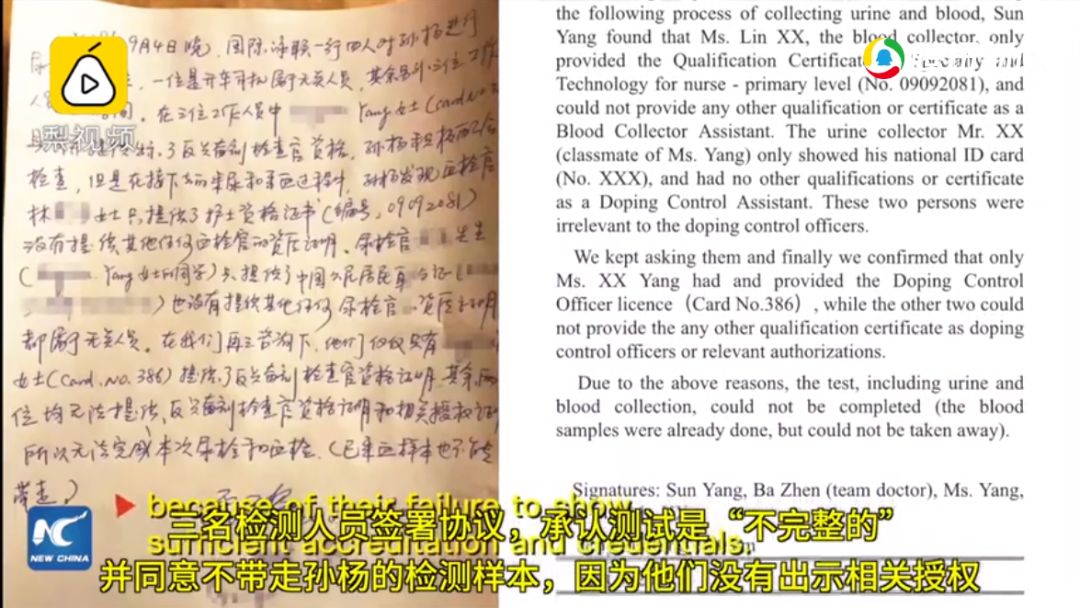 9月4日晚，国际泳联一行四人对孙杨进行
一位是开车司机属于无关人员，其余另外三位工作
在三位工作人员中 Yang女士(card No
了反兴奋剂检查官资格，孙杨积极配合
检查，但是在接下去的采尿和采血过程中，孙杨发现血检官
林 女士只提供了护士资格证书(编号，09092081)
没有提供其他任何血检官的资历证明。尿检官 先生
( Yang女士的同学)只提供了中国公民居民身份证(
)也没有提供其他任何尿检官 资历证明
都属于无关人员。在我们再三咨询下，他们仅仅只有
女士(Card.No.386)提供了反兴奋剂检查官资格证明，其余两
位均无法提供反兴奋剂检查官资格证明和相关授权
所以无法完成本次尿检和血检.(已采血样本也不能
带走)
the following process of collecting urine and blood, Sun
Yang found that Ms. Lin XX, the blood collector, only
provided the Qualification Certificate
Technology for nurse - primary level (No. 09092081), and
could not provide any other qualification or certificate as a
Blood Collector Assistant. The urine collector Mr. XX
(classmate of Ms. Yang) only showed his national ID card
(No. XXX), and had no other qualifications or certificate
as a Doping Control Assistant. These two persons were
irrelevant to the doping control officers.
We kept asking them and finally we confirmed that only
Ms. XX Yang had and provided the Doping Control
Officer licence（Card No.386）, while the other two could
not provide the any other qualification certificate as doping
control officers or relevant authorizations.
Due to the above reasons, the test, including urine and
blood collection, could not be completed (the blood
samples were already done, but could not be taken away).
Signatures: Sun Yang, Ba Zhen (team doctor), Ms. Yang,
梨视频
because of their failure to show
sufficient accreditation and credentials.
三名检测人员签署协议，承认测试是“不完整的”
并同意不带走孙杨的检测样本，因为他们没有出示相关授权
NC
NEW CHINA